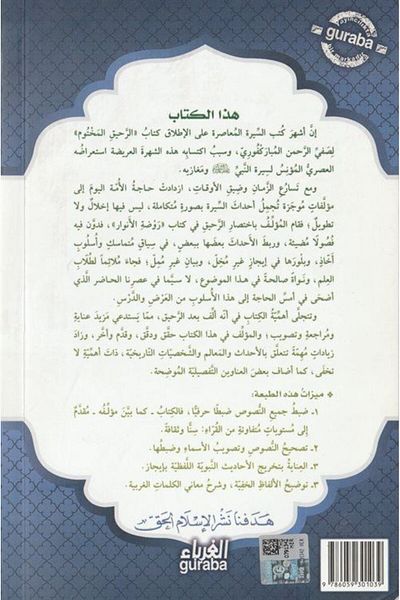 Yayıncılıkta
guraba
bir markadır
هذا الكتاب
إنّ أشهرَ كُتب السِّيرة المُعاصرة على الإطلاق كتابُ «الرَّحيق المَختُوم»
لِصَفيِّ الرحمن المباركفُوريّ، وسببُ اكتسابِه هذه الشهرةَ العريضة استعراضُه
العصريُّ المُؤنِسُ لسِيرة النبيِّ ﷺ ومَغازيه.
ومع تَسارُعِ الزَّمانِ وضِيقِ الأوقات، ازدادتْ حاجةُ الأُمّة اليومَ إلى
مؤلَّفاتٍ مُوجَزة تُجمِلُ أحداثَ السِّيرة بصورةٍ متكاملة، ليس فيها إخلالٌ ولا
تطويلٌ؛ فقام المؤلِّفُ باختصارِ الرَّحيق في كتاب «رَوْضة الأنوار»، فدوَّن فيه
فُصولًا مُضيئة، وربطَ الأحداثَ بعضَها ببعض، في سياقٍ مُتماسكٍ وأُسلوبٍ
أخّاذ، وبلورَها في إيجازٍ غيرِ مُخِلّ، وبيانٍ غيرِ مُمِلّ؛ فجاء مُلائِمًا لطُلّاب
العِلم، ونَواةً صالحةً في هذا الموضوع، لا سيّما في عصرِنا الحاضر الذي
أضحى في أمسِّ الحاجة إلى هذا الأُسلوب من العَرْضِ والدَّرْس.
وتتجلَّى أهمّيّةُ الكتابِ في أنّه ألَّف بعد الرَّحيق، ممّا يَستدعي مَزيدَ عنايةٍ
ومُراجعةٍ وتصويب؛ والمؤلِّف في هذا الكتاب حقَّق ودقَّق، وقدَّم وأخَّر، وزادَ
زياداتٍ مُهمّةً تتعلَّق بالأحداث والمعالم والشخصيّات التاريخيّة، ذاتَ أهمّيّةٍ لا
تخفَى، كما أضاف بعضَ العناوين التفصيليّة المُوضِّحة.
* ميزاتُ هذه الطبعة:
١- ضبطُ جميعِ النُّصوص ضبطًا حرفيًّا، فالكتابُ - كما بيّن مؤلِّفُه - مُقدَّمٌ
إلى مستوياتٍ متفاوتةٍ من القُرّاء: سِنًّا وثقافةً.
٢- تصحيحُ النُّصوص وتصويبُ الأسماءِ وضبطُها.
٣- العِنايةُ بتخريجِ الأحاديث النبويّة اللَّفظيّة بإيجاز.
٣- توضيحُ الألفاظِ الخفِيّة، وشرحُ معاني الكلمات الغريبة.
هدفنا نشر الإسلام الحق
الغرباء
guraba
9 786059 301039